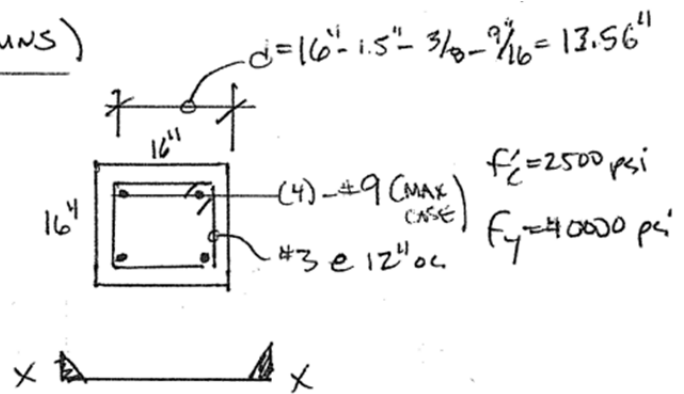 UMNS)
d=16"-1.5"-3/8-9/16=13.56"
16"
16"
(4)-#9 (MAX CASE)
#3 @ 12" oc
f'c=2500 psi
fy=40000 psi
X X